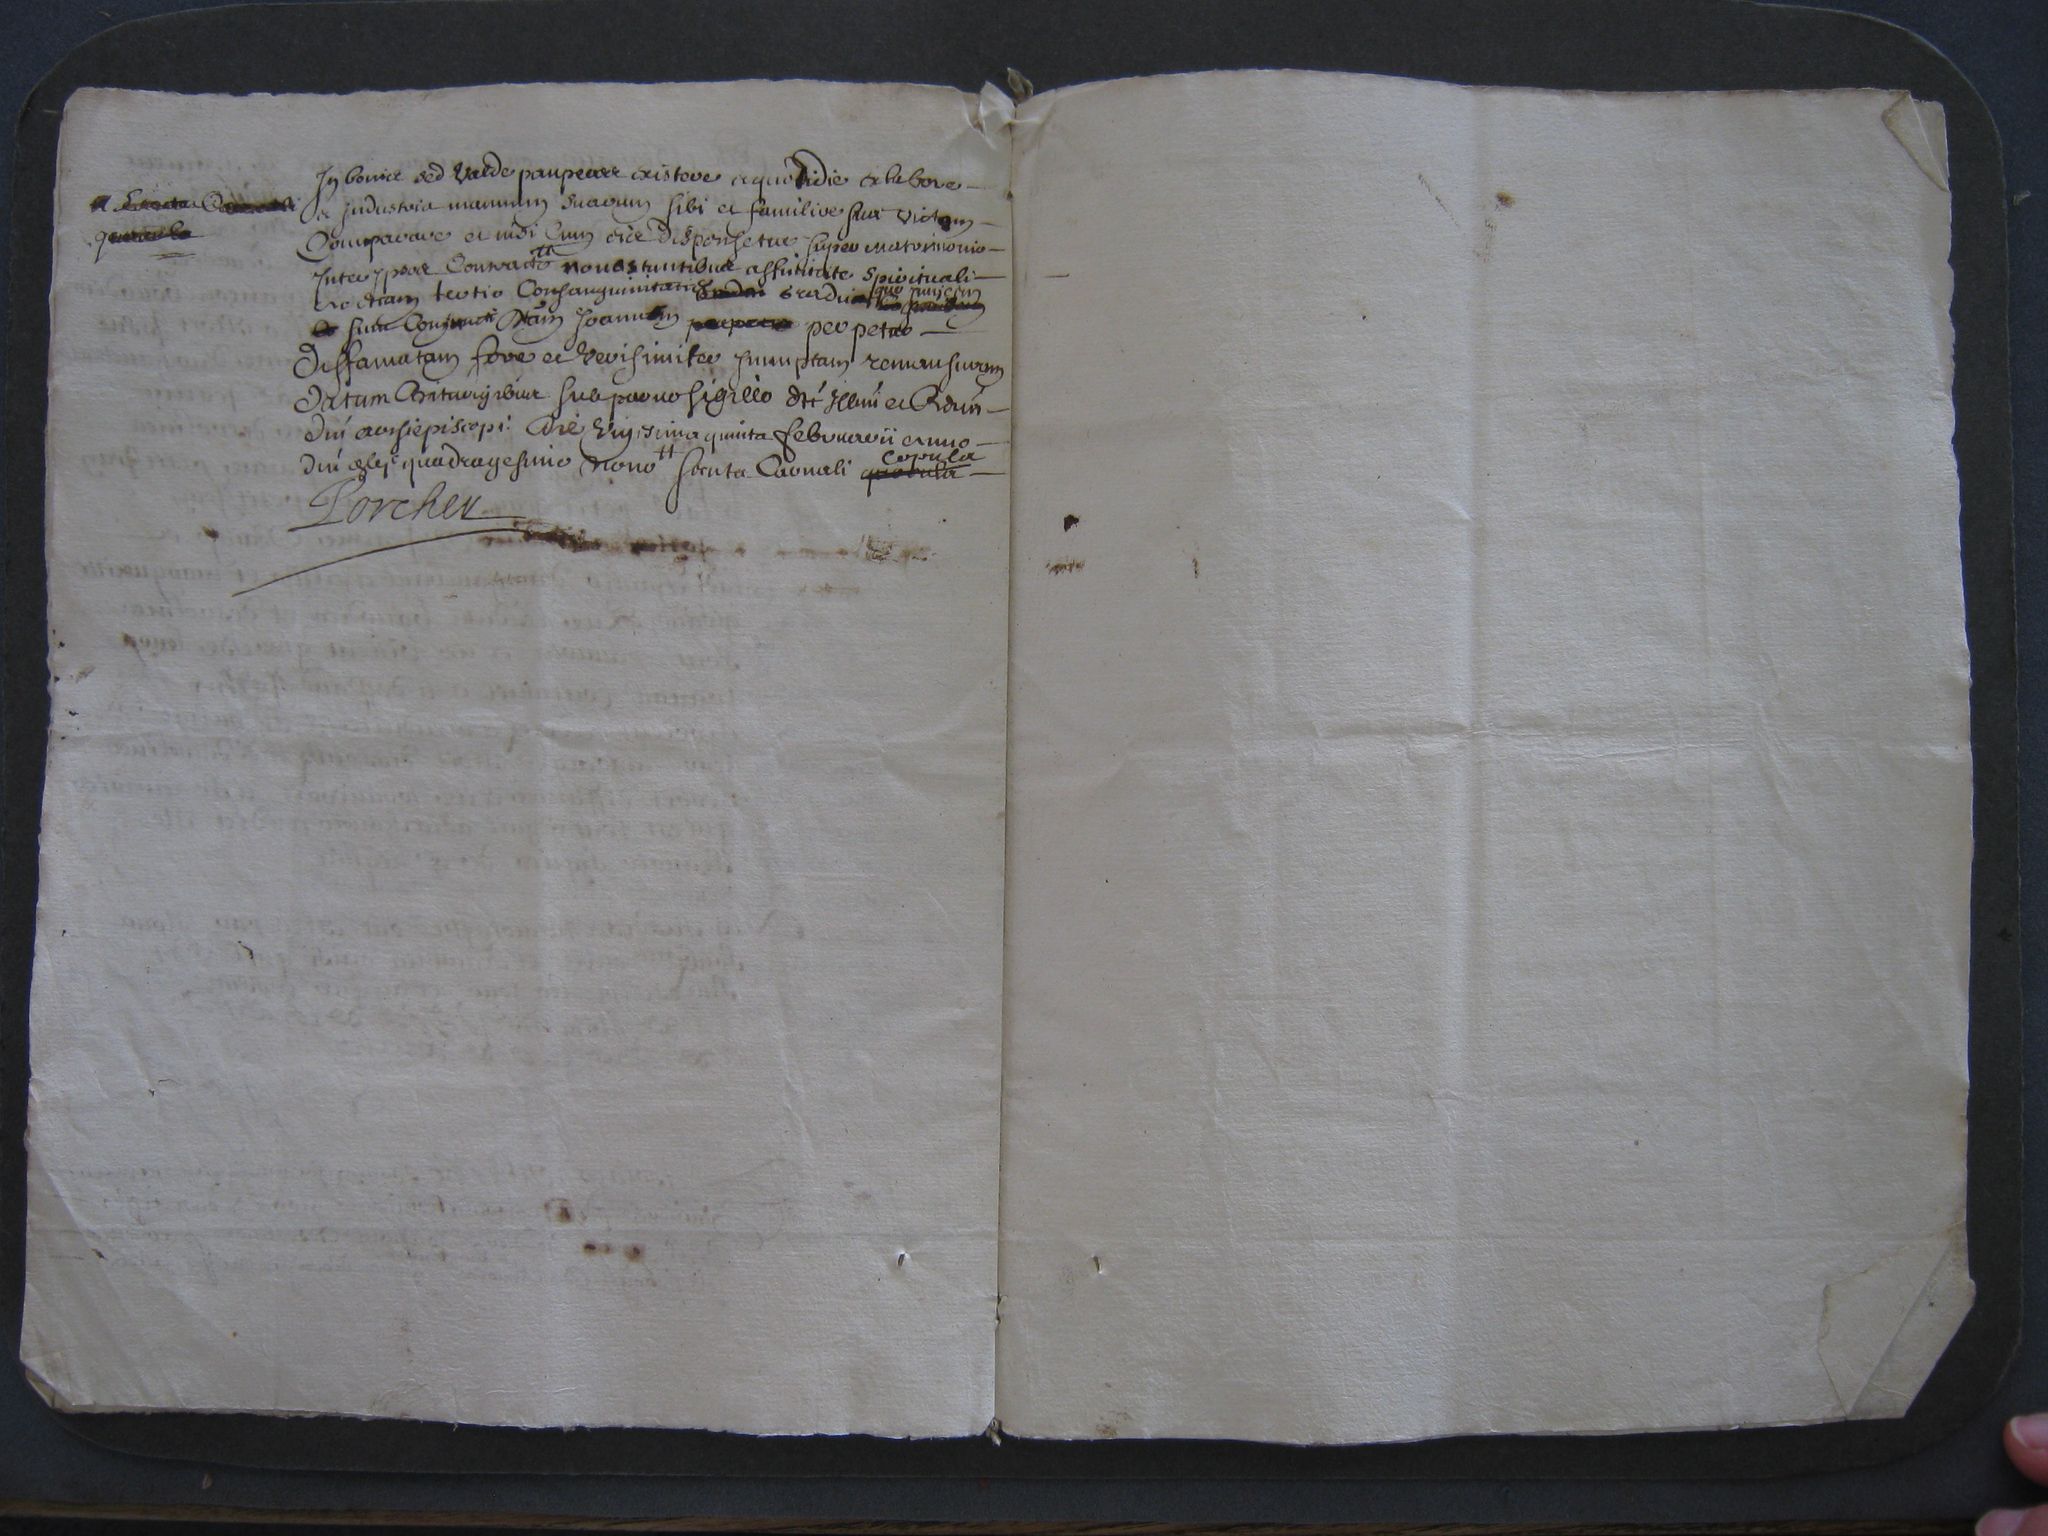 In bonis sed valde pauperes existere ac quotidie ex labore
et industria manuum suarum sibi et familiæ suæ victum
Comparare et nisi Cum eis dispensetur super matrimonio
Inter ipsos Contracto ++ non obstantibus affinitate spirituali
ac etiam tertio Consanguinitatis gradu quo invicem
sunt Conjuncti dtam Joannam perpetuo
diffamatam fore et verisimiliter innuptam remansuram
Datum Biturigibus sub parvo sigillo dti Illmi et Rdmi
dni archiepiscopi die vigesima quinta februarii anno
dni quadragesimo nono ++ secuta Carnali copula
Porcher